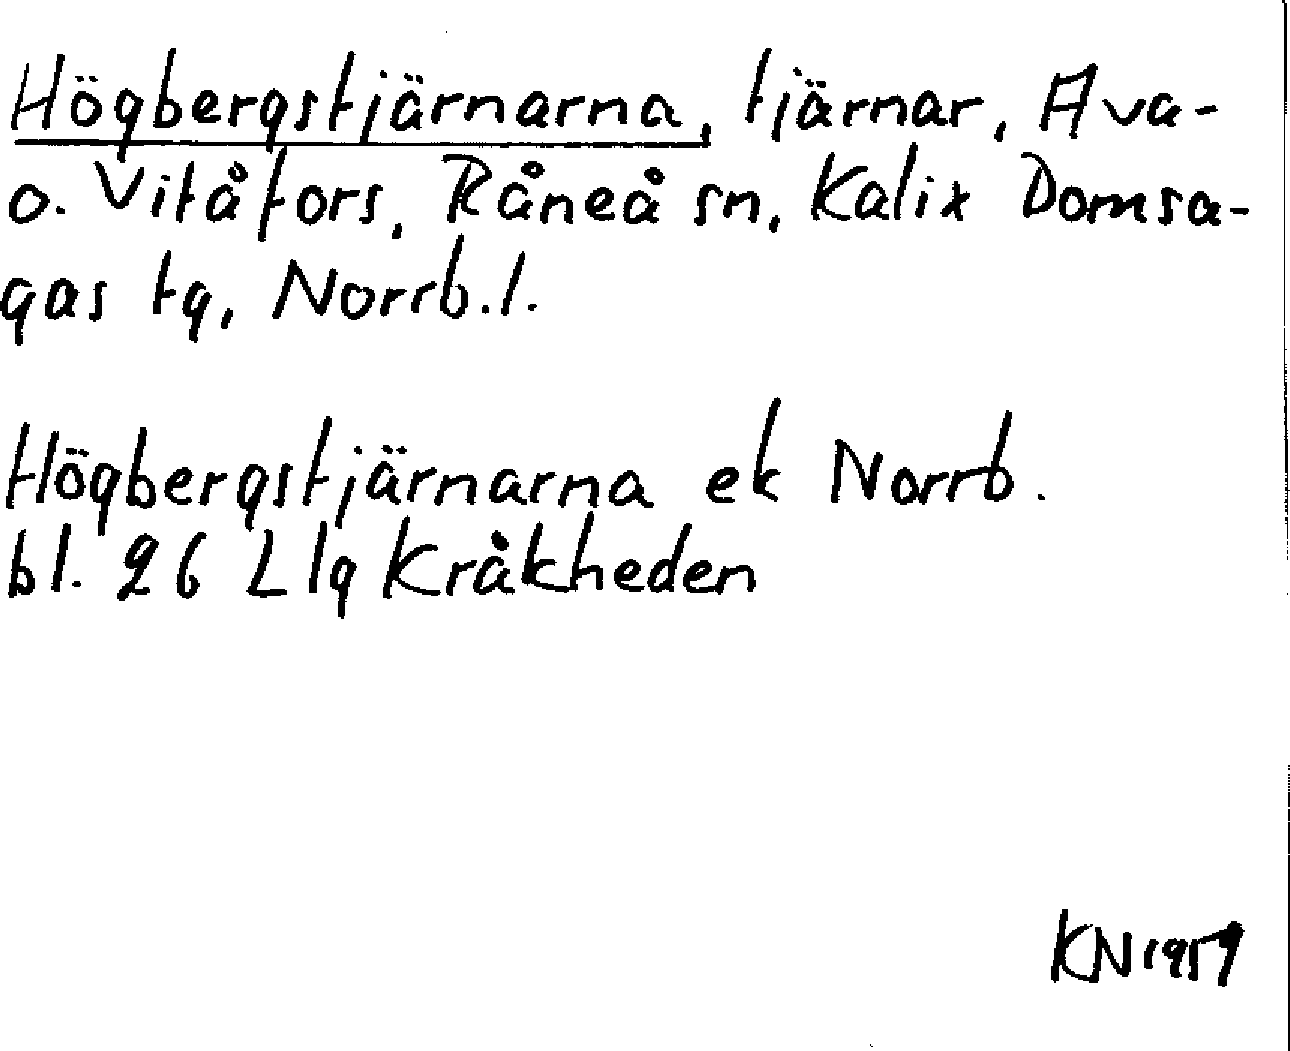 Högbergstjärnarna, tjärnar, Ava-
o. Vitåfors, Råneå sn, Kalix Domsa-
gas tg, Norrb.l.
Högbergstjärnarna ek Norrb.
bl. 26 L lg Kråkheden
KN 1959